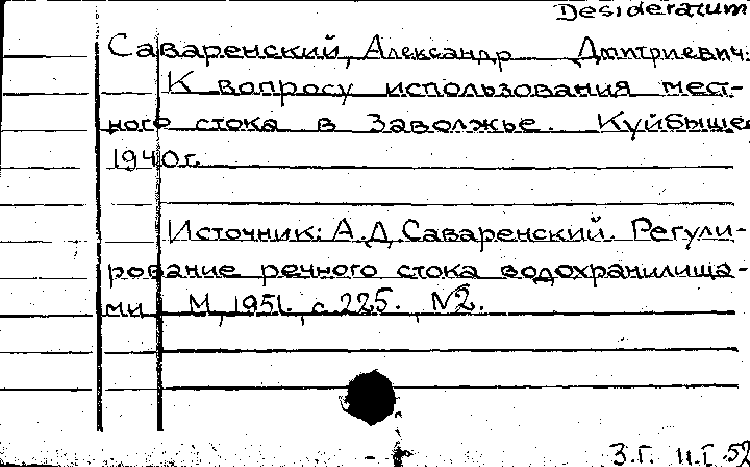 Desideratum
Саваренский, Александр Дмитриевич:
К вопросу использования мест-
ного стока в Заволжье. Куйбыше
1940г.
Источник: А.Д.Саваренский. Регули-
рование речного стока водохранилища-
ми М., 1951., с.225., №2.
З.Г. 11.I.52